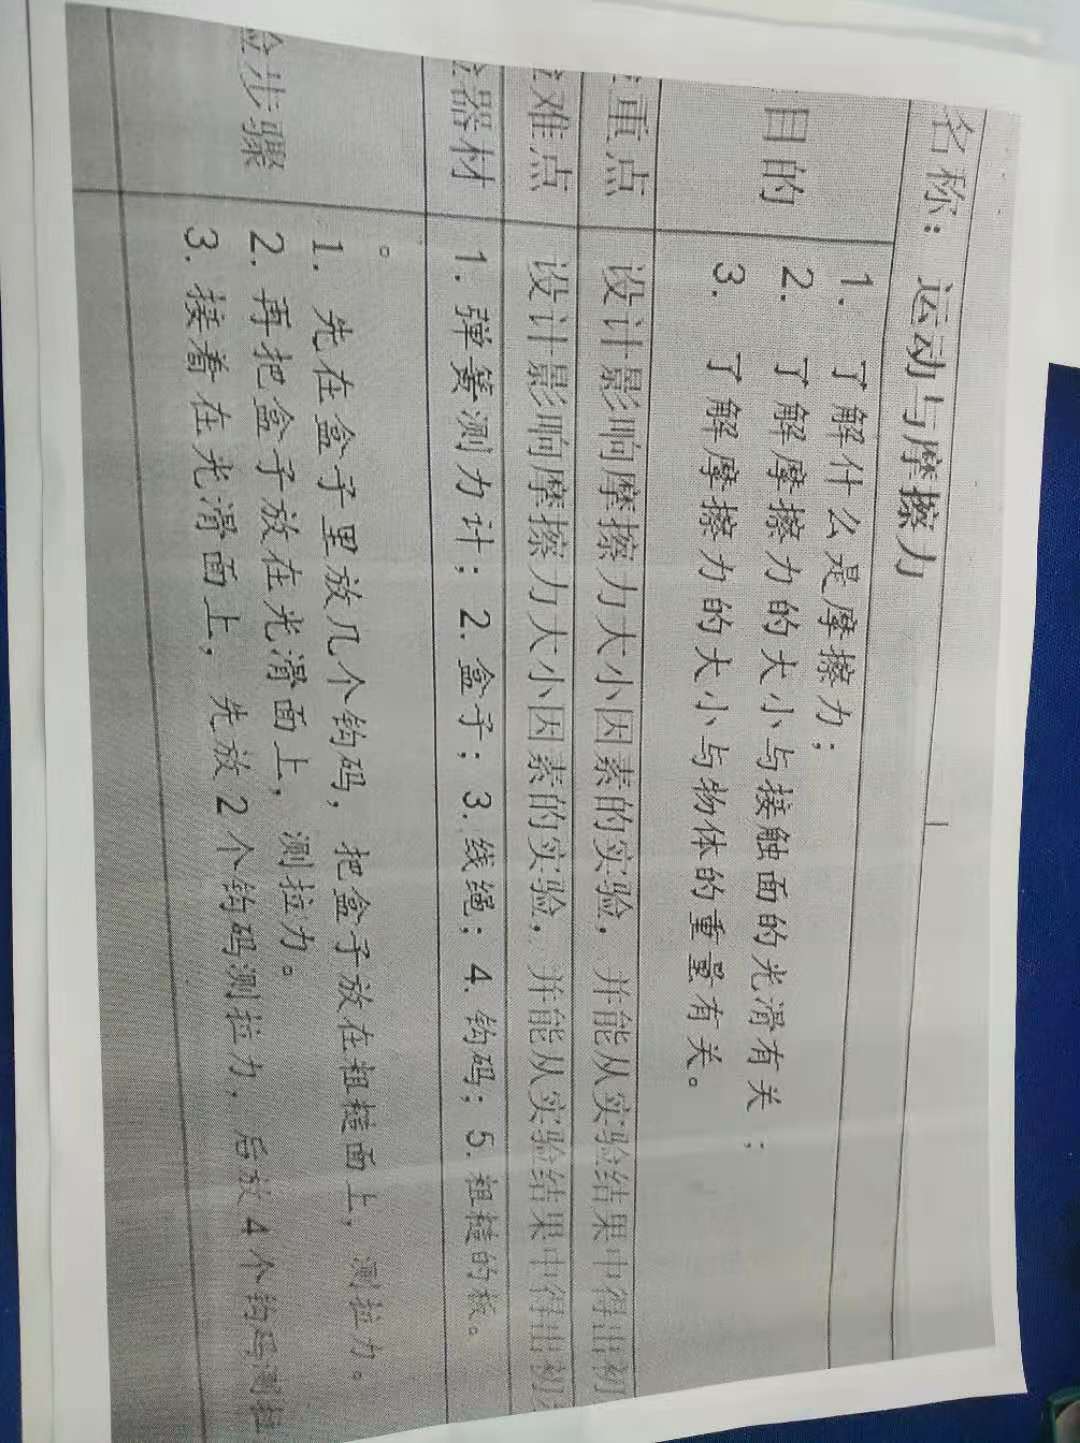 名称：运动与摩擦力
目的
1. 了解什么是摩擦力；
2. 了解摩擦力的大小与接触面的光滑有关；
3. 了解摩擦力的大小与物体的重量有关。
重点 设计影响摩擦力大小因素的实验，并能从实验结果中得出初
难点 设计影响摩擦力大小因素的实验，并能从实验结果中得出初
器材 1. 弹簧测力计；2. 盒子；3. 线绳；4. 钩码；5. 粗糙的板。
。
验步骤
1. 先在盒子里放几个钩码，把盒子放在粗糙面上，测拉力。
2. 再把盒子放在光滑面上，测拉力。
3. 接着在光滑面上，先放2个钩码测拉力，后放4个钩码测拉